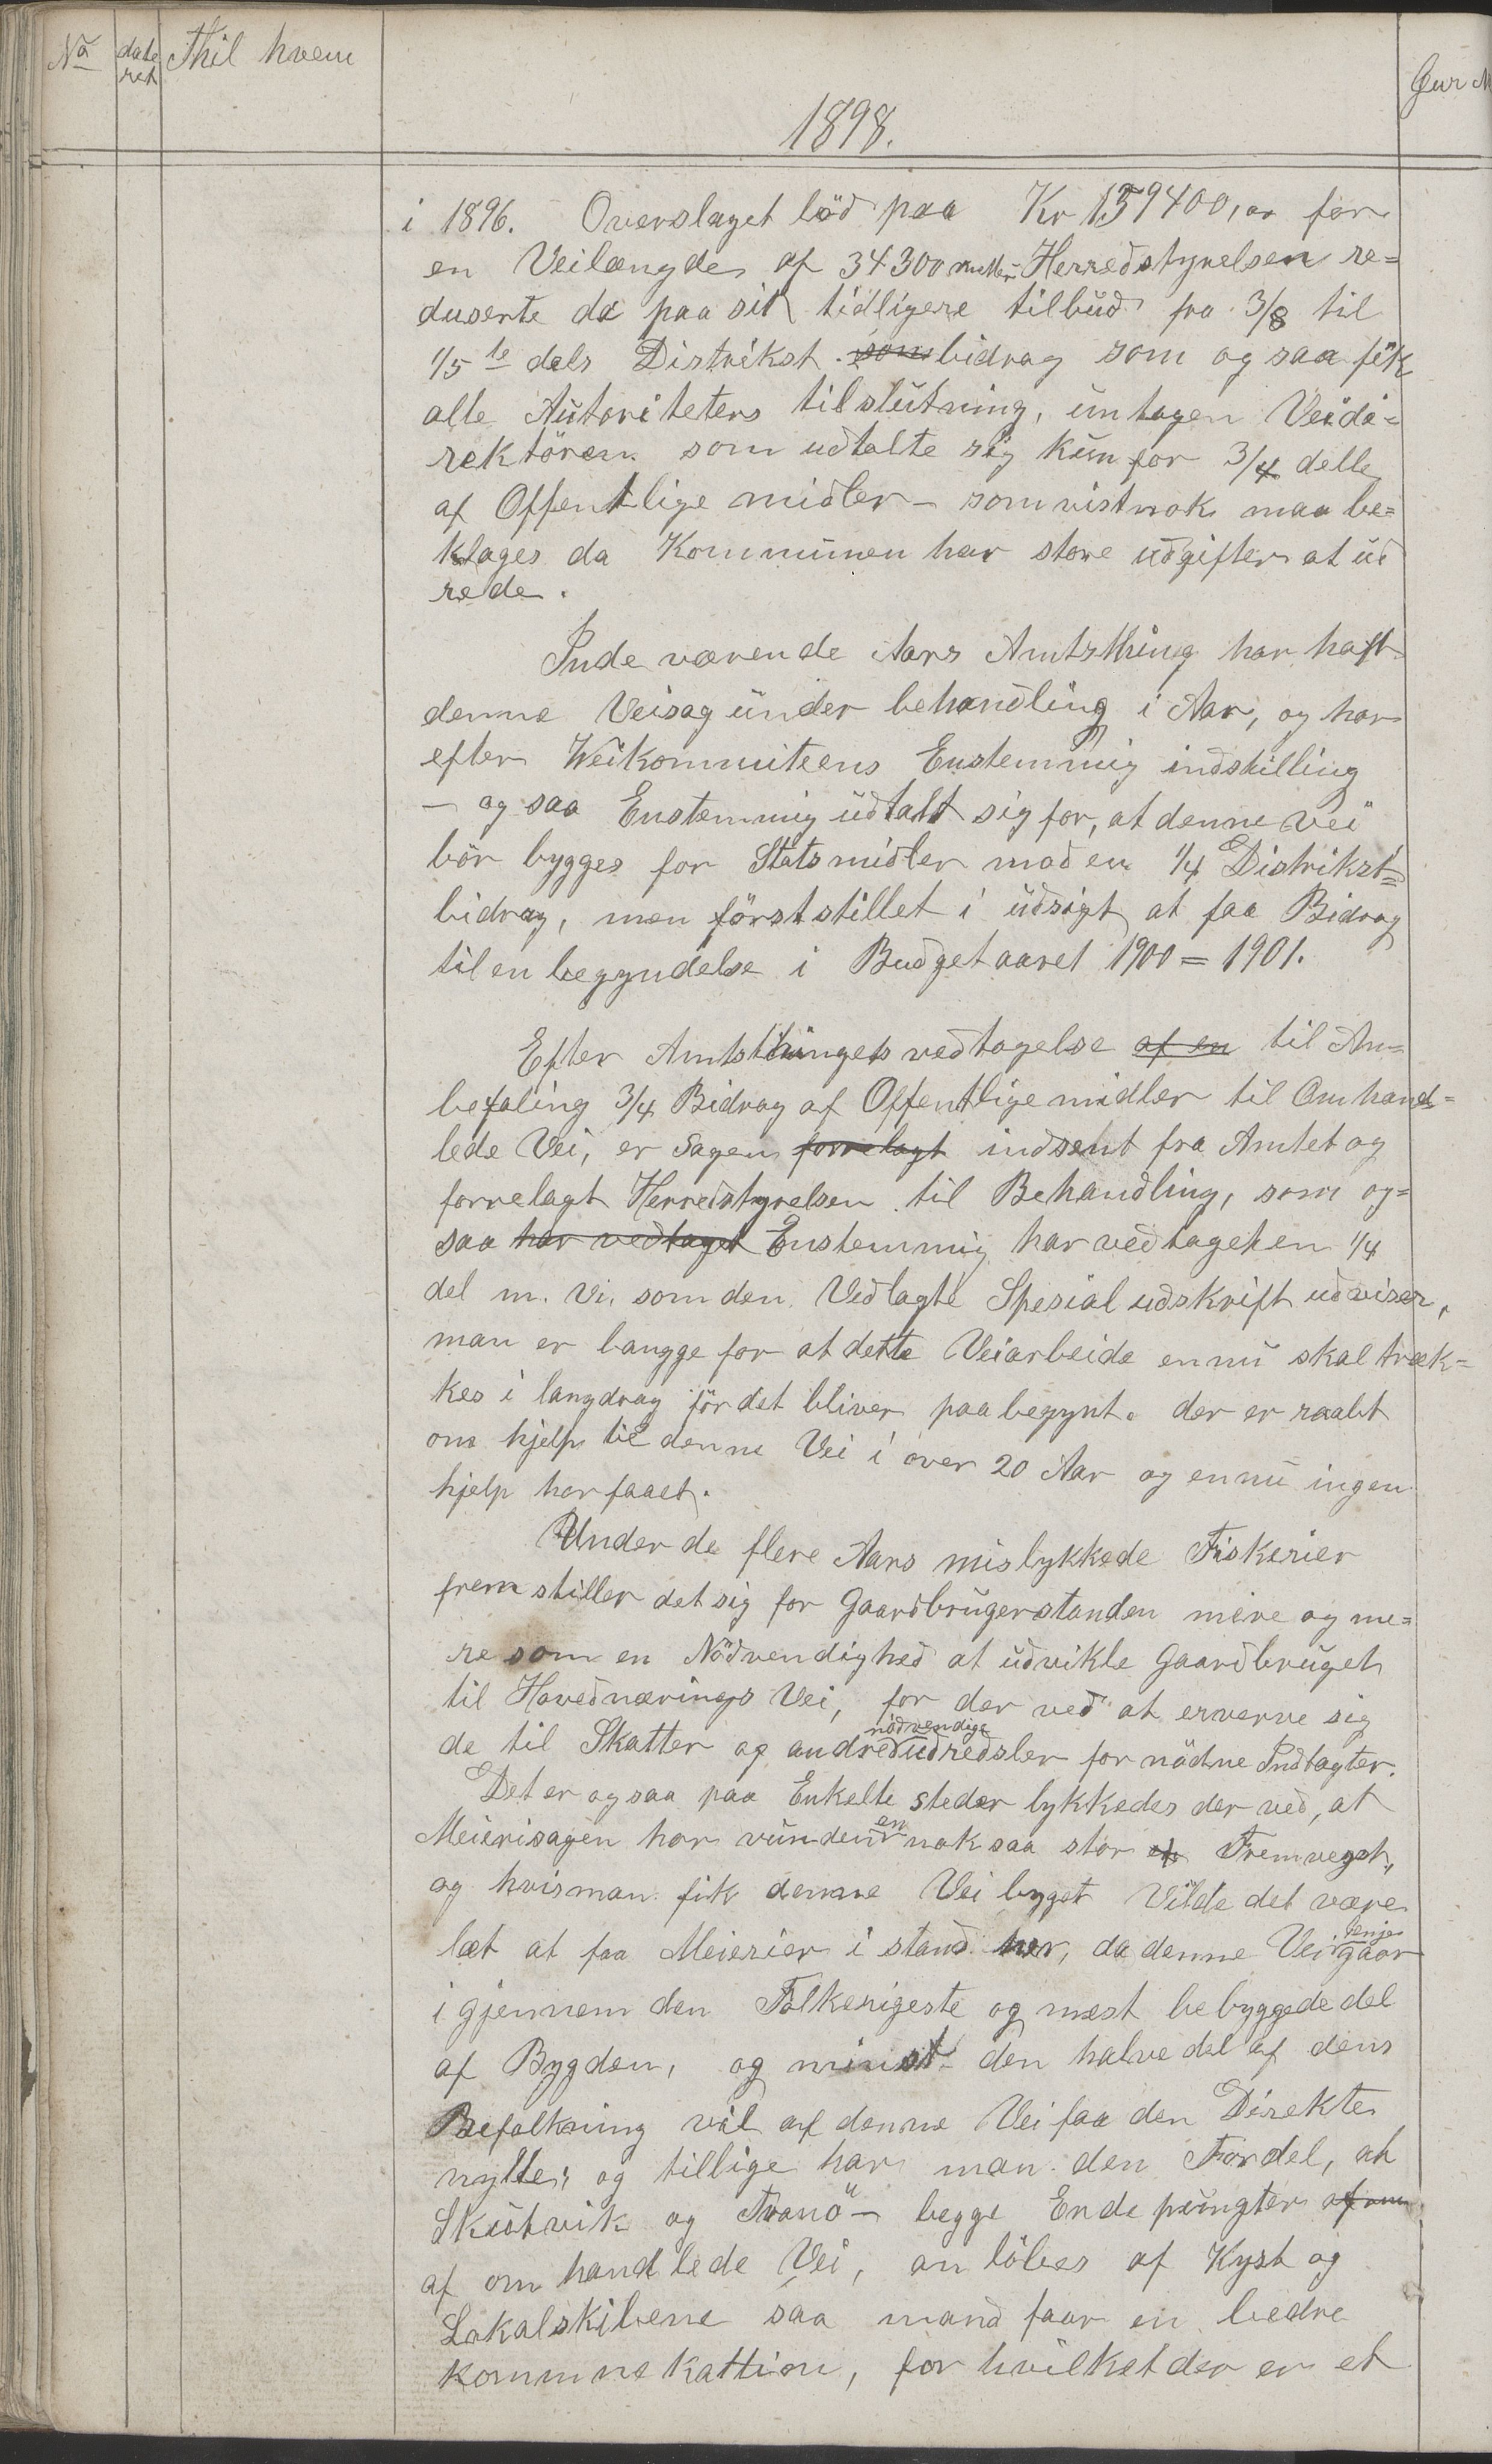 No date Thil hvem
ret
Jur
1898.
i 1896. Overslaget löd paa Kr 159400,00 for
en Veilængde af 34300 metter Herredstyrelsen re=
duserte da paa sit tidligere tilbud fra 3/8 til
1/5 te dels Distrikst som bidrag som og saa fik
alle Autoriteters tilslutning, untagen Veidi=
rektören som udtalte sig kun for 3/4 delle
af Offentlige midler – som vistnok maa be=
klages da Kommunen har store udgifter at ud
rede.
Inde værende Aars Amtsthing har haft
denne Veisag under behandling i Aar, og har
efter Veikommiteens Enstemmig indstilling
– og saa Enstemmig udtalt sig for, at denne Vei
bör bygges for Statsmidler mod en 1/4 Distrikst=
bidrag, men först stillet i udsigt at faa Bidrag
til en begyndelse i Budgetaaret 1900=1901.
Efter Amtsthingets vedtagelse af en til An=
befaling 3/4 Bidrag af Offentlige midler til Omhand=
lede Vei, er Sagen forrelagt indsent fra Amtet og
forrelagt Herredstyrelsen til Behandling, som og=
saa har vedtaget Enstemmig har vedtaget en 1/4
del m. Vi. som den Vedlagte Spesial udskrift udviser,
man er bangge for at dette Veiarbeide ennu skal træk=
kes i langdrag för det bliver paabegynt. der er raabt
om hjelp til denne Vei i over 20 Aar og ennu ingen
hjelp har faaet.
Under de flere Aars mislykkede Fiskerier
fremstiller det sig for Gaardbrugerstanden mere og me=
re som en Nödvendighed at udvikle Gaardbruget
til Hovednærings Vei, for der ved at erverve sig
nödvendige
de til Skatter og andre udredsler for nödne Indtagter.
Det er ogsaa paa Enkelte steder lykkedes der ved, at
en
Meierisagen har vunden nok saa stor Fremvegst,
og hvis man fik denne Vei bygget Vilde det være
lenje
læt at faa Meierier i stand her, da denne Vei gaar
igjennem den Folkerigeste og mest bebyggede del
af Bygden, og minst den halve del af dens
Befolkning vil af denne Vei faa den Direkte
nytte, og tillige har man den Fordel, at
Skutvik og Tranö – begge Ende pungter af om
af om handlede Vei, anlöbes af Kyst og
Lokalskibene saa mand faar en bedre
kommnekattion, for hvilket der er et